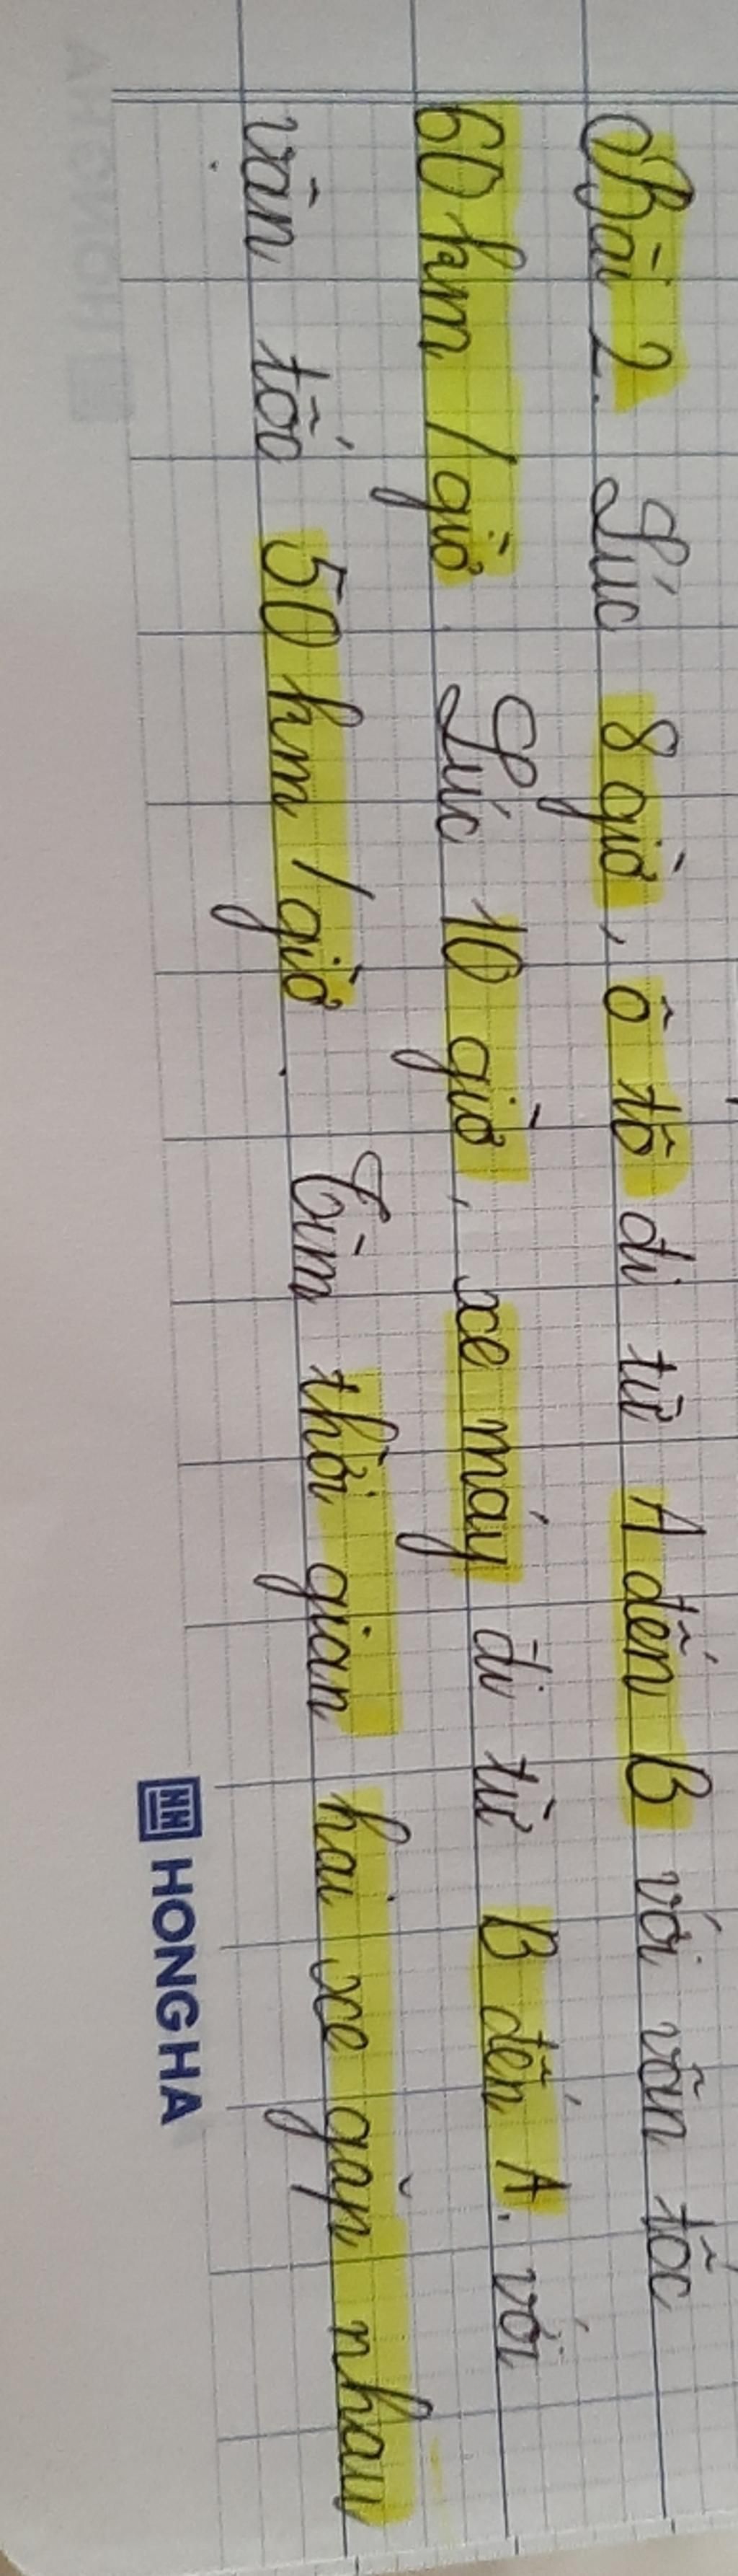 Bài 2. Lúc 8 giờ, ô tô đi từ A đến B với vận tốc
60 km/giờ. Lúc 10 giờ, xe máy đi từ B đến A. với
vận tốc 50 km/giờ. Tìm thời gian hai xe gặp nhau
HONG HA